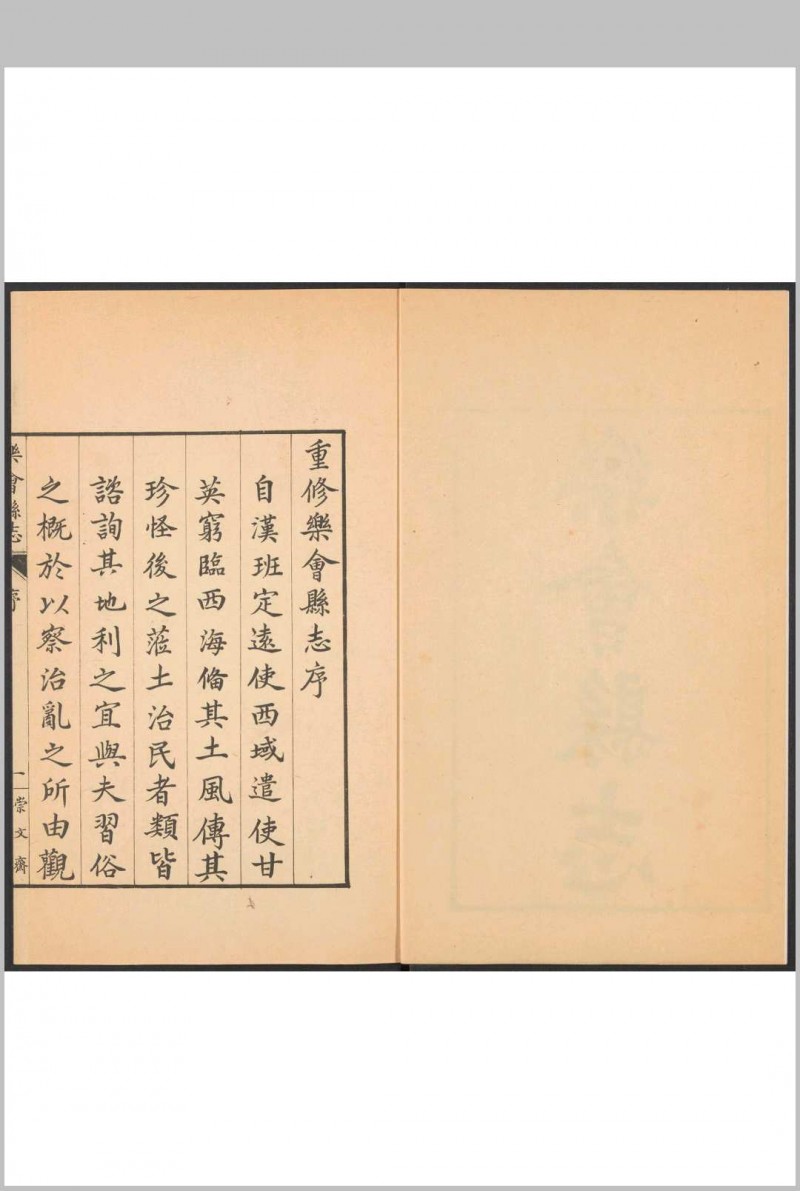 重修樂會縣志序
自漢班定遠使西域遣使甘
英窮臨西海僃其土風傳其
珍怪後之蒞土治民者類皆
諮詢其地利之宜與夫習俗
之概於以察治亂之所由觀
樂會縣志
序
一
崇文齋